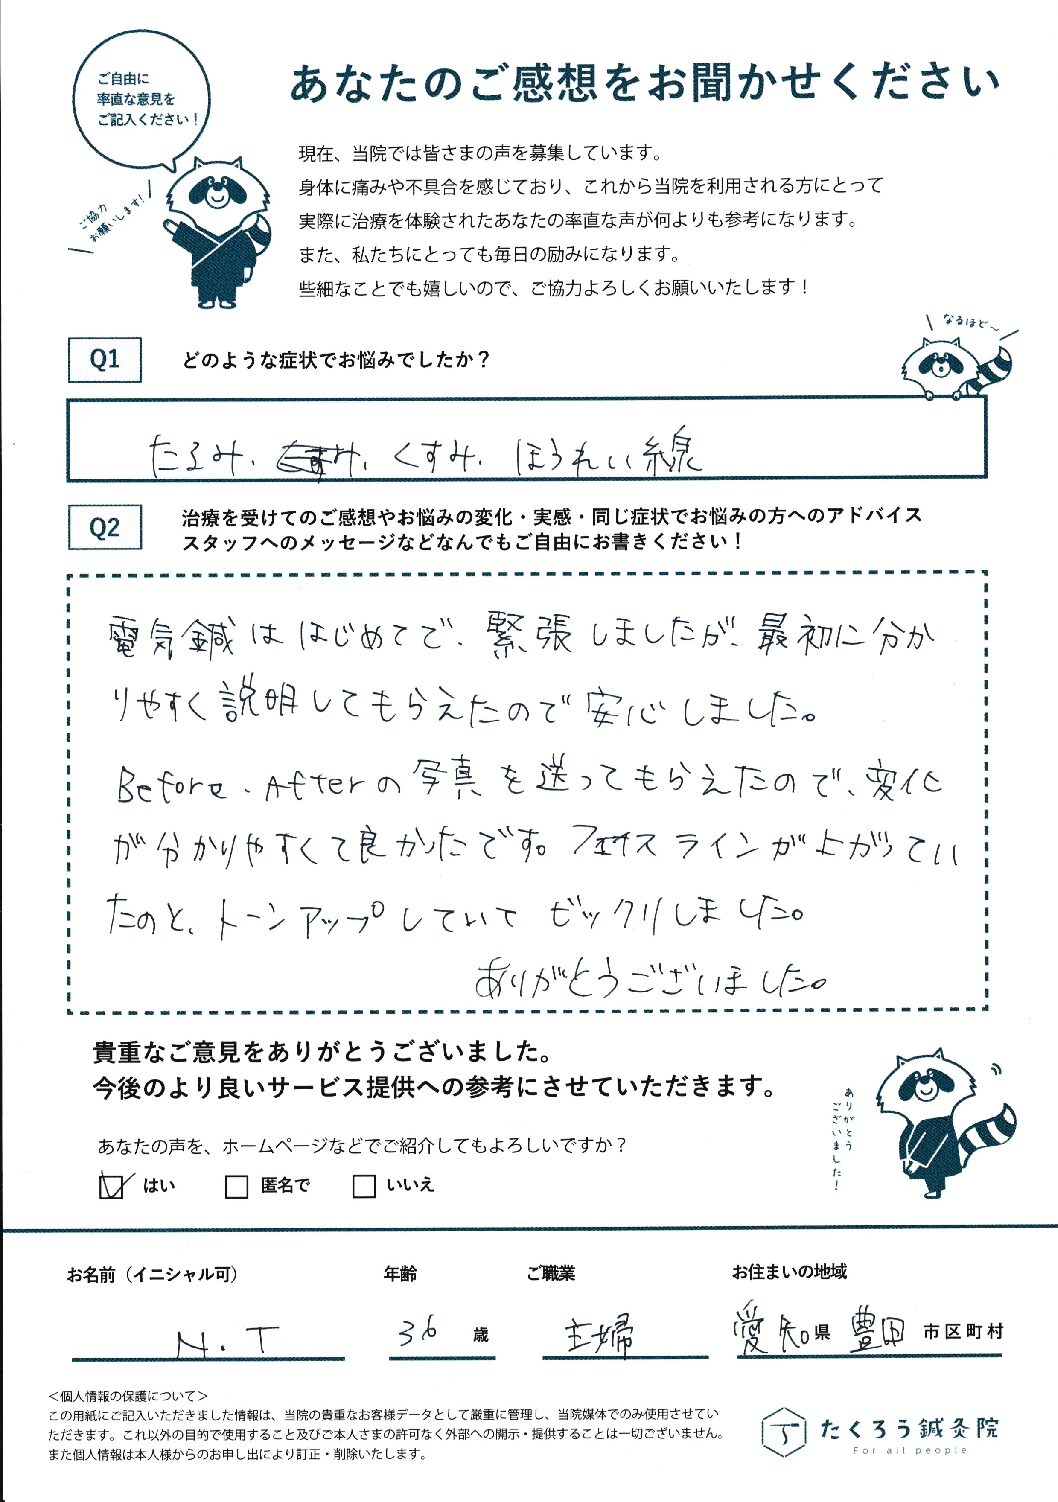 ご自由に
率直な意見を
ご記入ください！
ご協力
お願いします！
あなたのご感想をお聞かせください
現在、当院では皆さまの声を募集しています。
身体に痛みや不具合を感じており、これから当院を利用される方にとって
実際に治療を体験されたあなたの率直な声が何よりも参考になります。
また、私たちにとっても毎日の励みになります。
些細なことでも嬉しいので、ご協力よろしくお願いいたします！
なるほど〜
Q1
どのような症状でお悩みでしたか？
たるみ、くすみ、ほうれい線
Q2
治療を受けてのご感想やお悩みの変化・実感・同じ症状でお悩みの方へのアドバイス
スタッフへのメッセージなどなんでもご自由にお書きください！
電気鍼ははじめてで、緊張しましたが、最初に分か
りやすく説明してもらえたので安心しました。
Before・Afterの写真を送ってもらえたので、変化
が分かりやすくて良かったです。フェイスラインが上がってい
たのと、トーンアップしていてビックリしました。
ありがとうございました。
貴重なご意見をありがとうございました。
今後のより良いサービス提供への参考にさせていただきます。
ありがとう
ございました！
あなたの声を、ホームページなどでご紹介してもよろしいですか？
はい 匿名で いいえ
お名前（イニシャル可） 年齢 ご職業 お住まいの地域
N.T 36 歳 主婦 愛知県 豊田 市区町村
＜個人情報の保護について＞
この用紙にご記入いただきました情報は、当院の貴重なお客様データとして厳重に管理し、当院媒体でのみ使用させてい
ただきます。これ以外の目的で使用すること及びご本人さまの許可なく外部への開示・提供することは一切ございません。
また個人情報は本人様からのお申し出により訂正・削除いたします。
たくろう鍼灸院
For all people